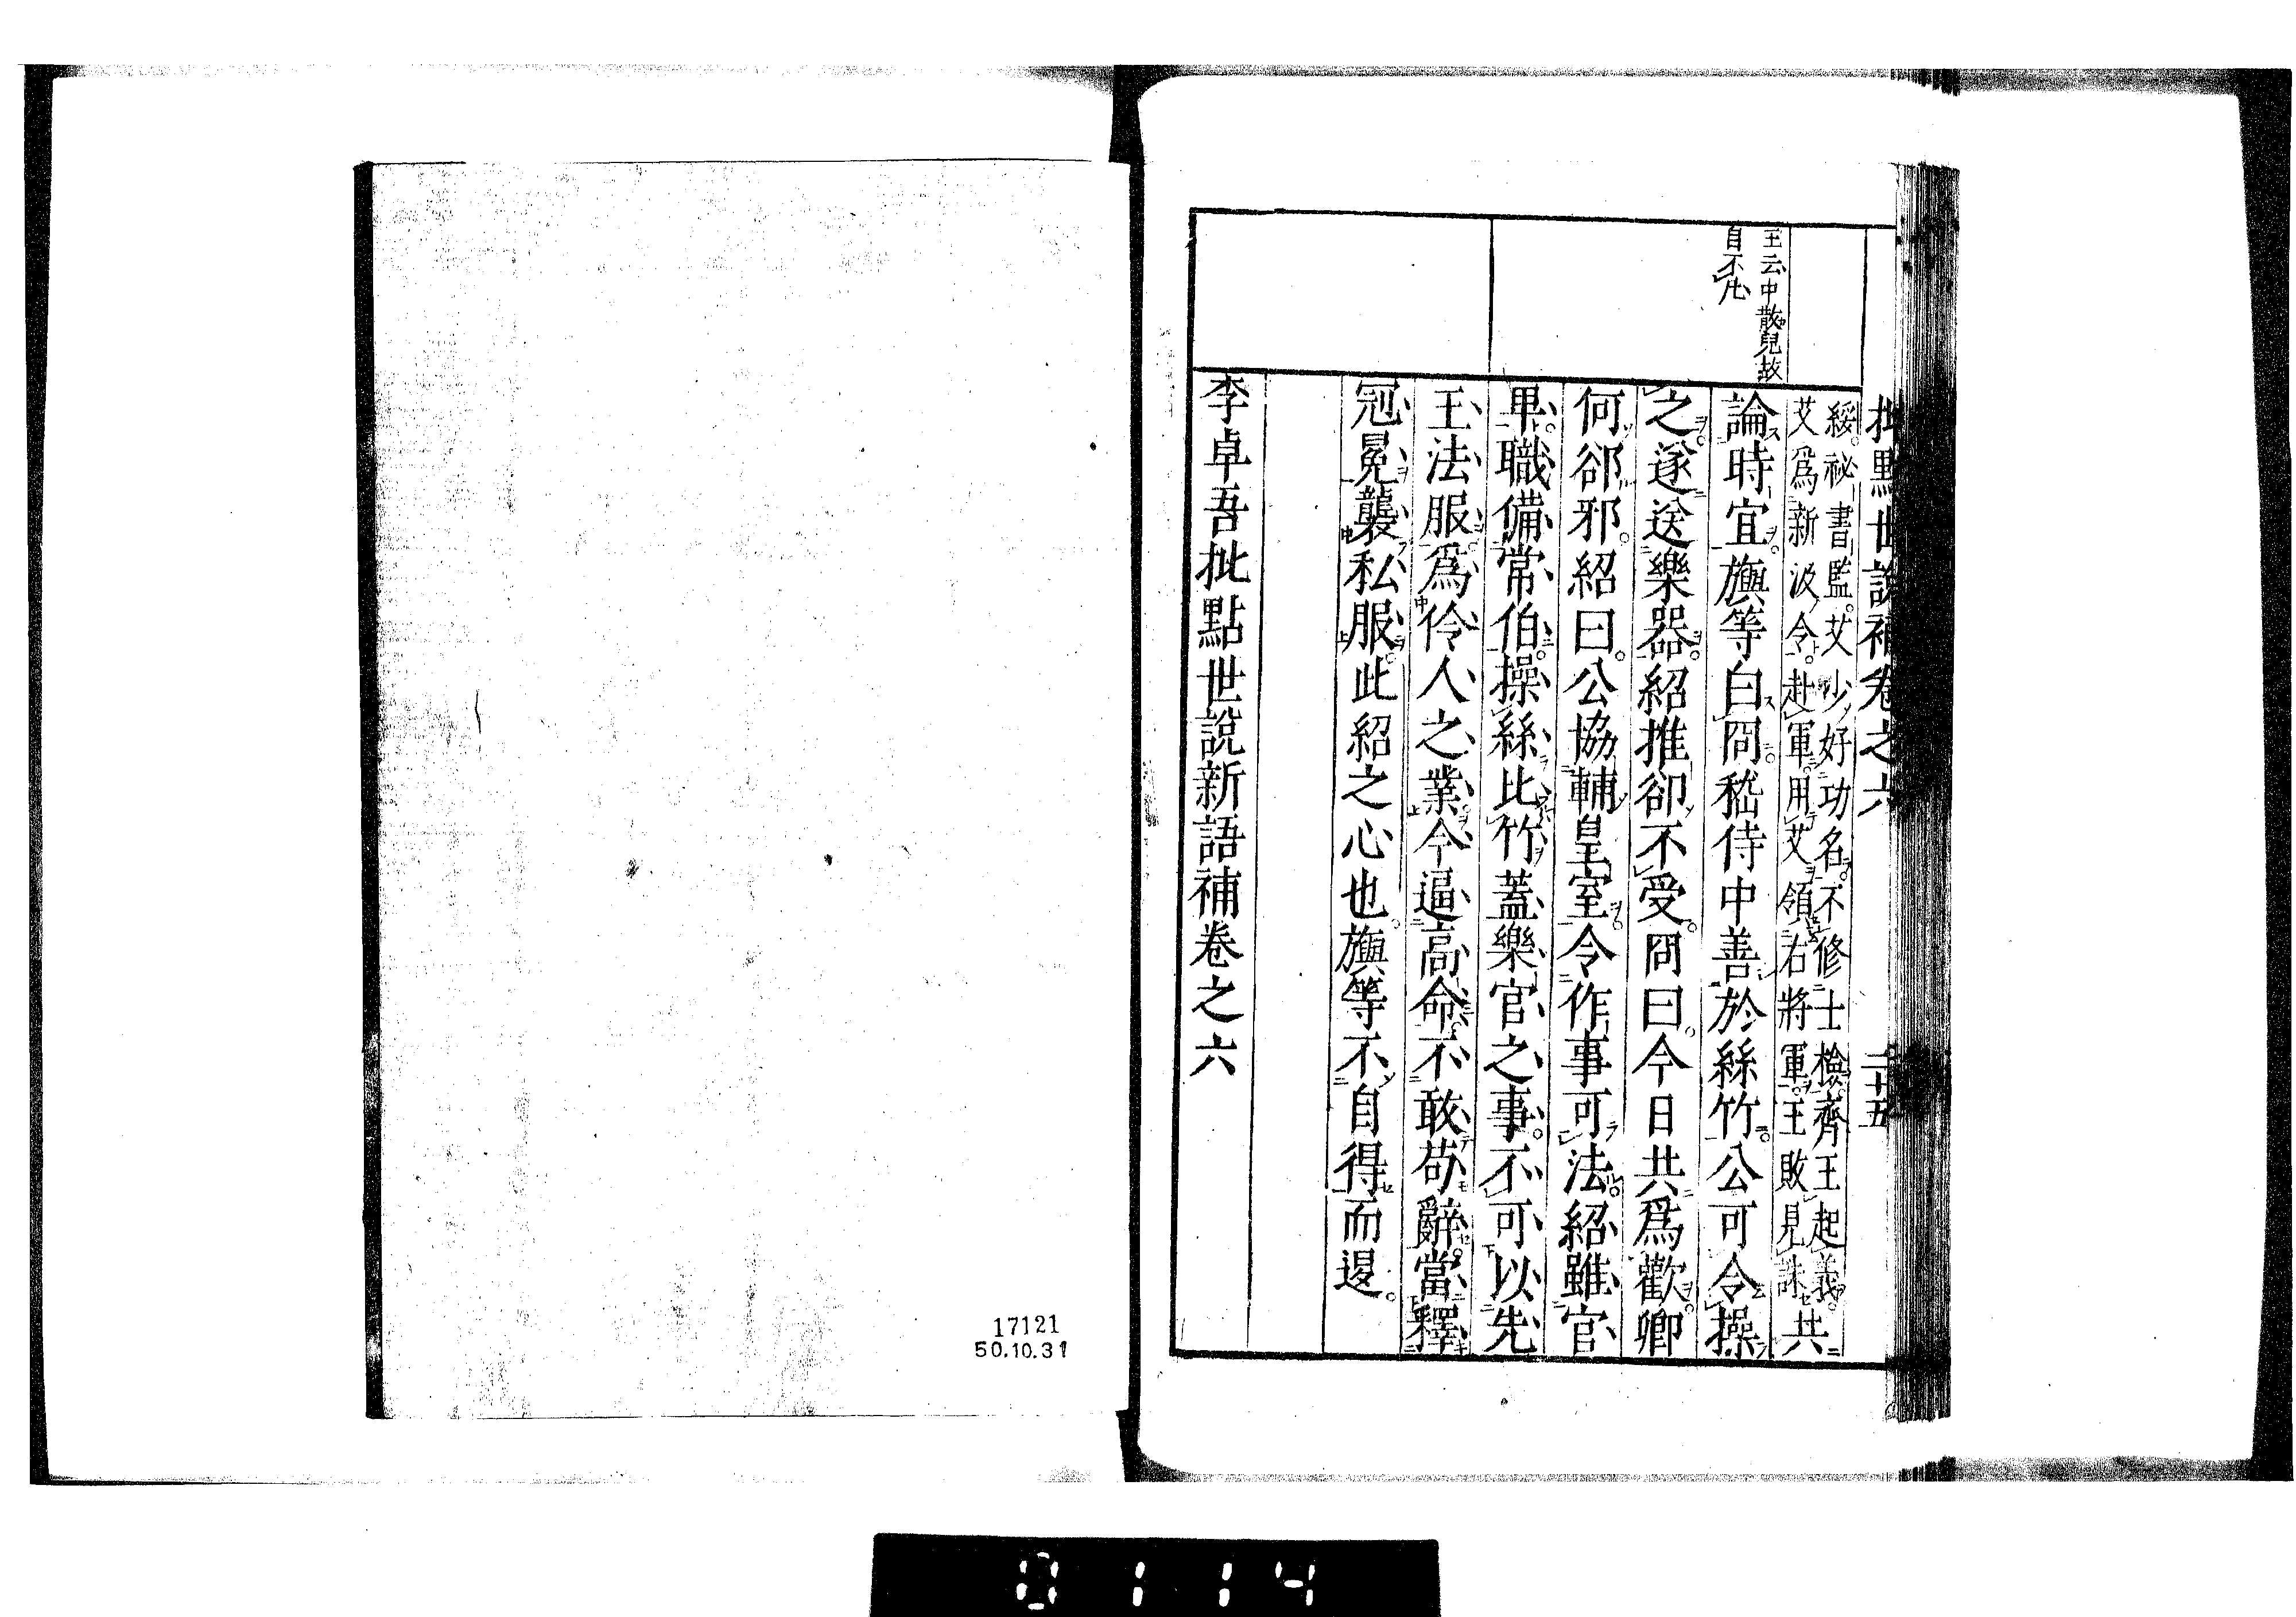 批點世說補卷之六
二十五
王云中散兒故
自不凡
綏祕書監艾少好功名不修士檢齊王起義
艾爲新汲令赴軍用艾領右將軍王敗見誅共
論時宜旟等白冏嵇侍中善於絲竹公可令操
之遂送樂器紹推卻不受冏曰今日共爲歡卿
何卻邪紹曰公協輔皇室令作事可法紹雖官
卑職備常伯操絲比竹蓋樂官之事不可以先
王法服爲伶人之業今逼高命不敢苟辭當釋
冠冕襲私服此紹之心也旟等不自得而退
李卓吾批點世說新語補卷之六
17121
50.10.31
0114